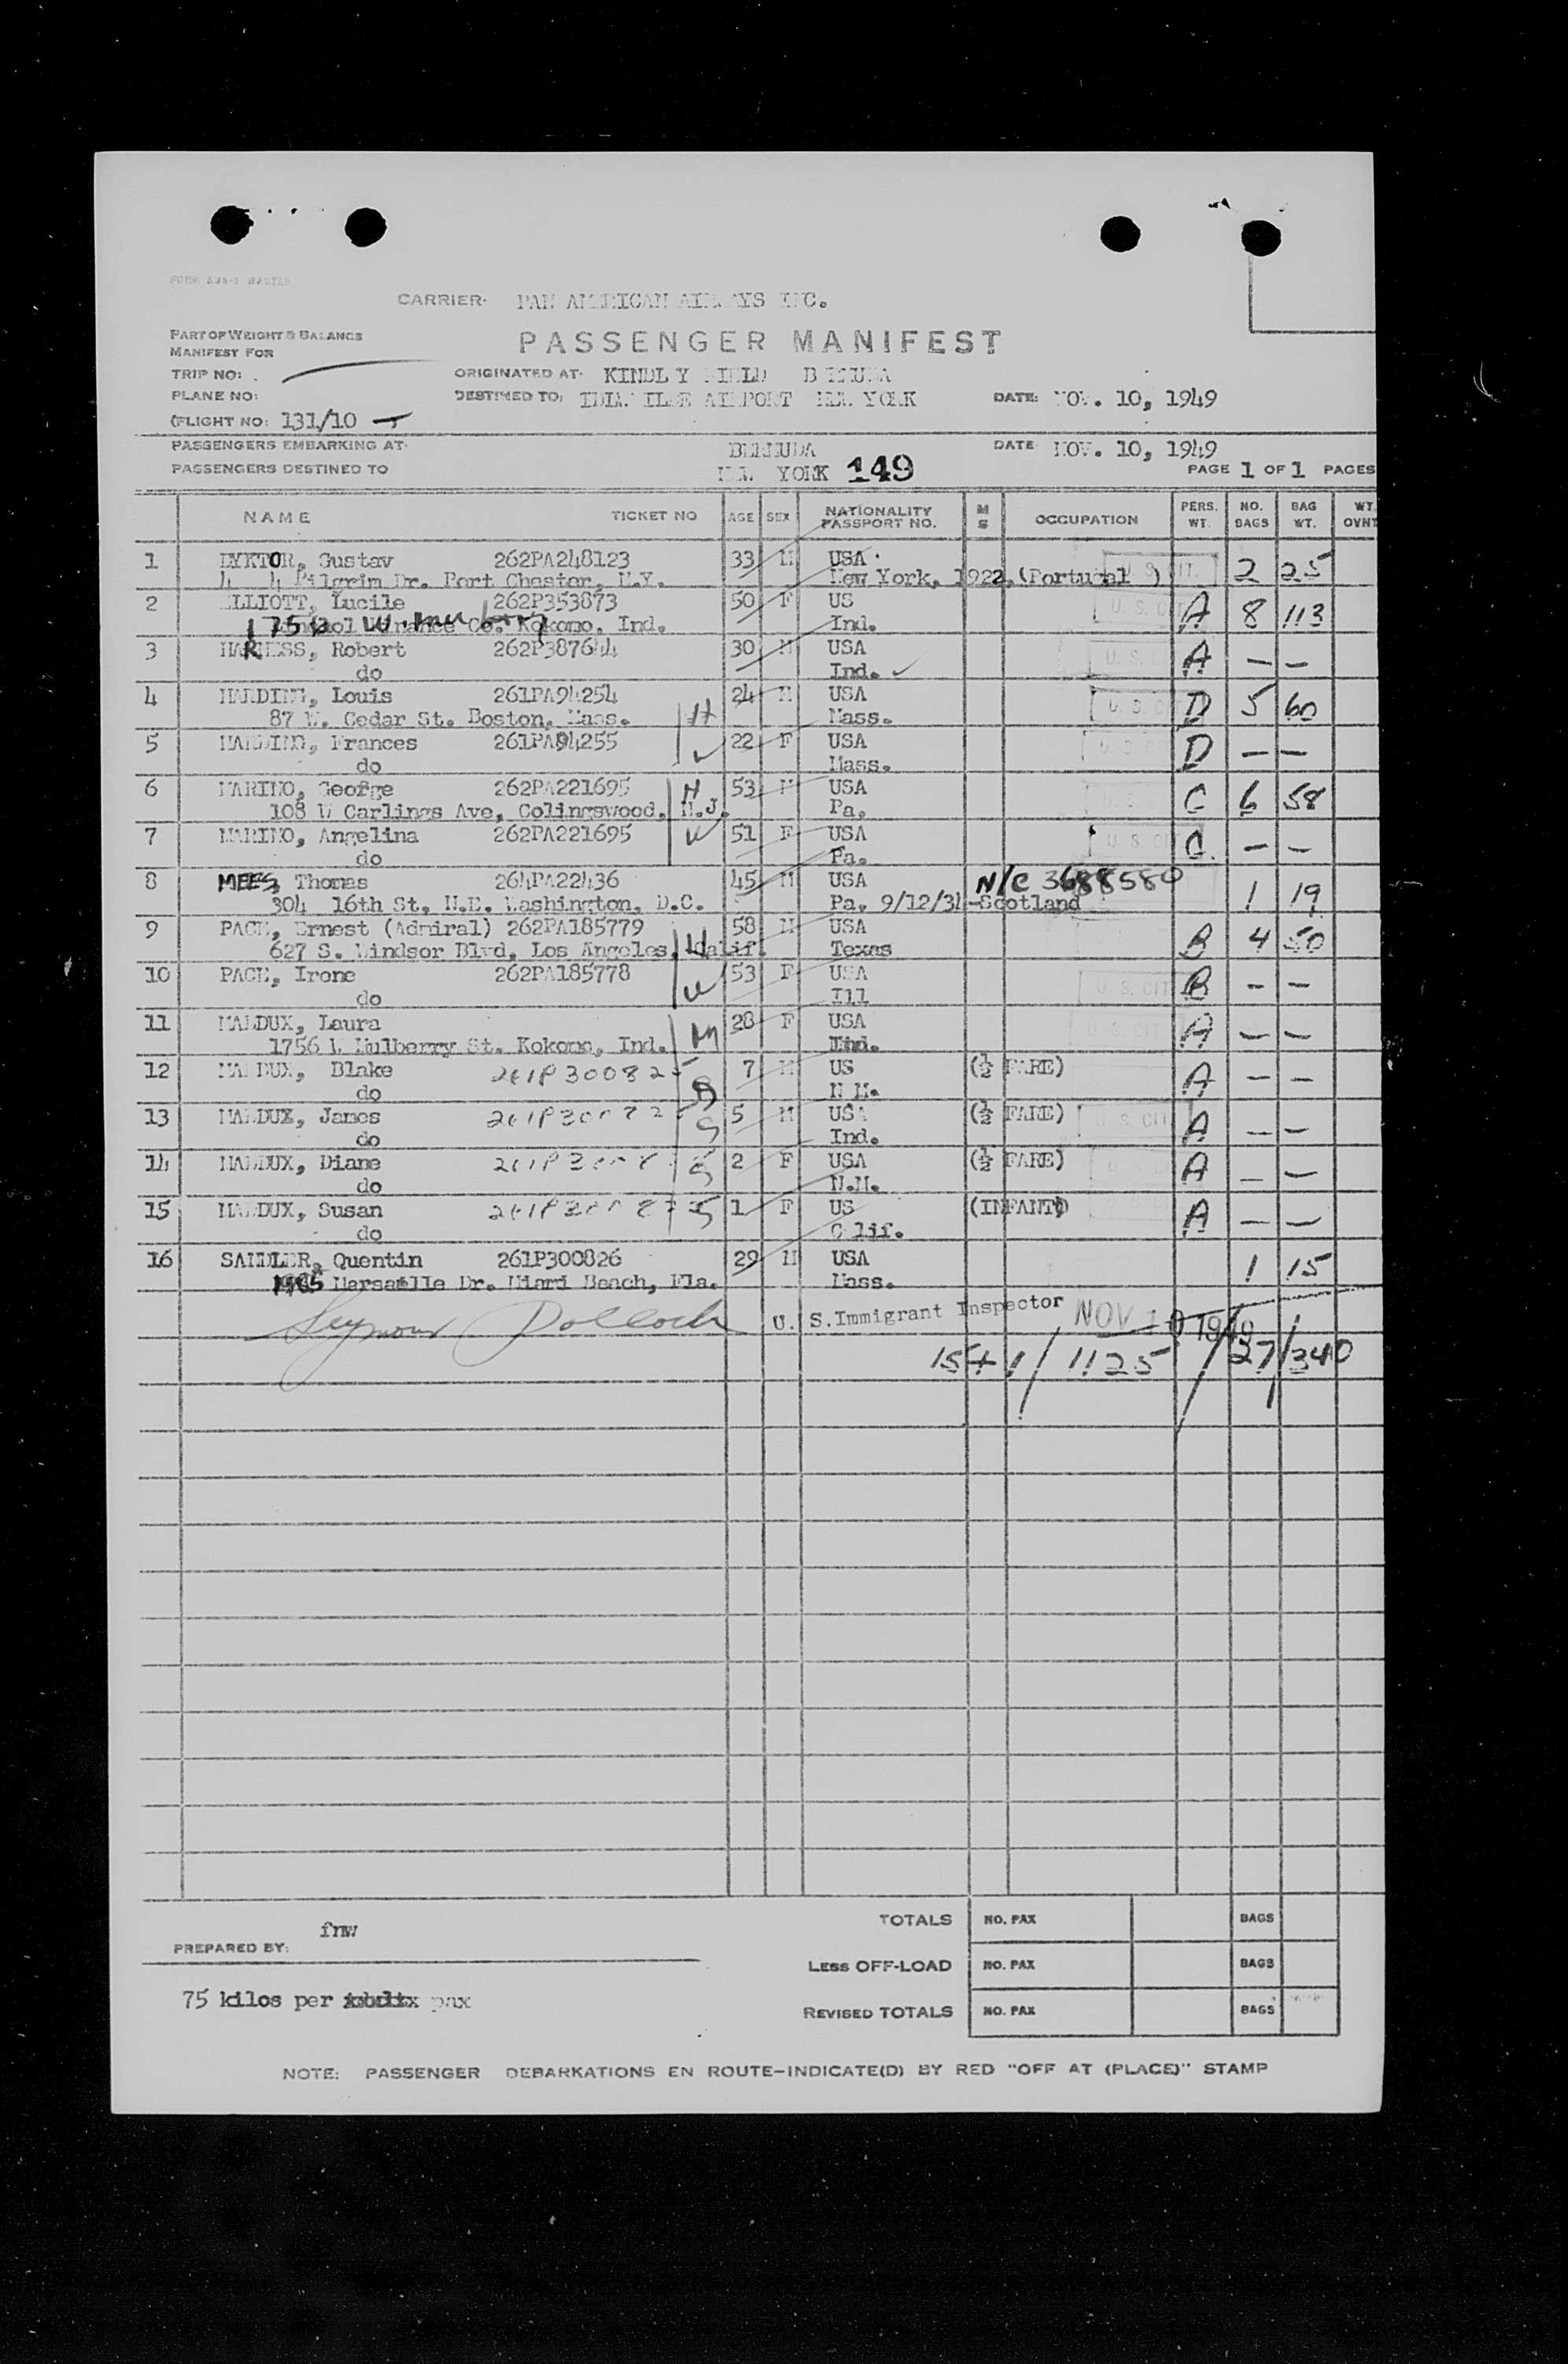 FORM MASTER
CARRIER: PAN AMERICAN AIRWAYS INC.
PART OF WEIGHT & BALANCE
MANIFEST FOR
PASSENGER MANIFEST
TRIP NO:
ORIGINATED AT: KINDL Y FIELD BERMUDA
PLANE NO:
DESTINED TO: AIRPORT NEW YORK DATE: NOV. 10, 1949
FLIGHT NO: 131/10
PASSENGERS EMBARKING AT: BERMUDA DATE NOV. 10, 1949
PASSENGERS DESTINED TO NEW YORK 149 PAGE 1 OF 1 PAGES
NAME TICKET NO AGE SEX NATIONALITY PASSPORT NO. M S OCCUPATION PERS. WT. NO. BAGS BAG WT. WT. OVNT
1 Gustav 262PA248123 33 M USA 2 25
Pilgrim Dr. Port Chester, N.Y. New York, 1922, (Portugal ) U. S. CIT.
2 ELLIOTT, Lucile 262P353873 50 F US U. S. CIT A 8 113
Co. Kokomo, Ind. Ind.
3 HARNESS, Robert 262P387644 30 M USA U. S. C A — —
do Ind. ✓
4 HARDING, Louis 261PA94254 24 M USA U. S. CIT D 5 60
87 W. Cedar St. Boston, Mass. H Mass.
5 HARDING, Frances 261PA94255 22 F USA U. S. CI D — —
do Mass.
6 MARINO, George 262PA221695 H 53 M USA U. S. C 6 58
108 W Carlings Ave, Colingswood, N.J. Pa.
7 MARINO, Angelina 262PA221695 W 51 F USA U. S. CIT C. — —
do Pa.
8 MEES, Thomas 264PA22436 45 M USA N/C 3688580 1 19
304 16th St, N.E. Washington, D.C. Pa, 9/12/34-Scotland
9 PACE, Ernest (Admiral) 262PA185779 58 M USA B 4 50
627 S. Windsor Blvd, Los Angeles, Calif. H Texas
10 PACE, Irene 262PA185778 53 F USA U. S. CIT B — —
do W Ill
11 MADDUX, Laura 28 F USA U. S. CIT A — —
1756 W Mulberry St. Kokomo, Ind. M Ind.
12 MADDUX, Blake 261P300825 7 M US (½ FARE) A — —
do S N M.
13 MADDUX, James 5 M USA (½ FARE) U. S. CIT A — —
do S Ind.
14 MADDUX, Diane 2 F USA (½ FARE) A — —
do S N.M.
15 MADDUX, Susan 1 F US (INFANT) A — —
do S C lif.
16 SANDLER, Quentin 261P300826 29 M USA 1 15
Marsaille Dr. Miami Beach, Fla. Mass.
Seymour Pollock U. S. Immigrant Inspector NOV 10 1949
15+1 / 1125 / 27 / 340
fmw
PREPARED BY:
75 kilos per pax
TOTALS NO. PAX BAGS
LESS OFF-LOAD NO. PAX BAGS
REVISED TOTALS NO. PAX BAGS
NOTE: PASSENGER DEBARKATIONS EN ROUTE-INDICATE(D) BY RED "OFF AT (PLACE)" STAMP